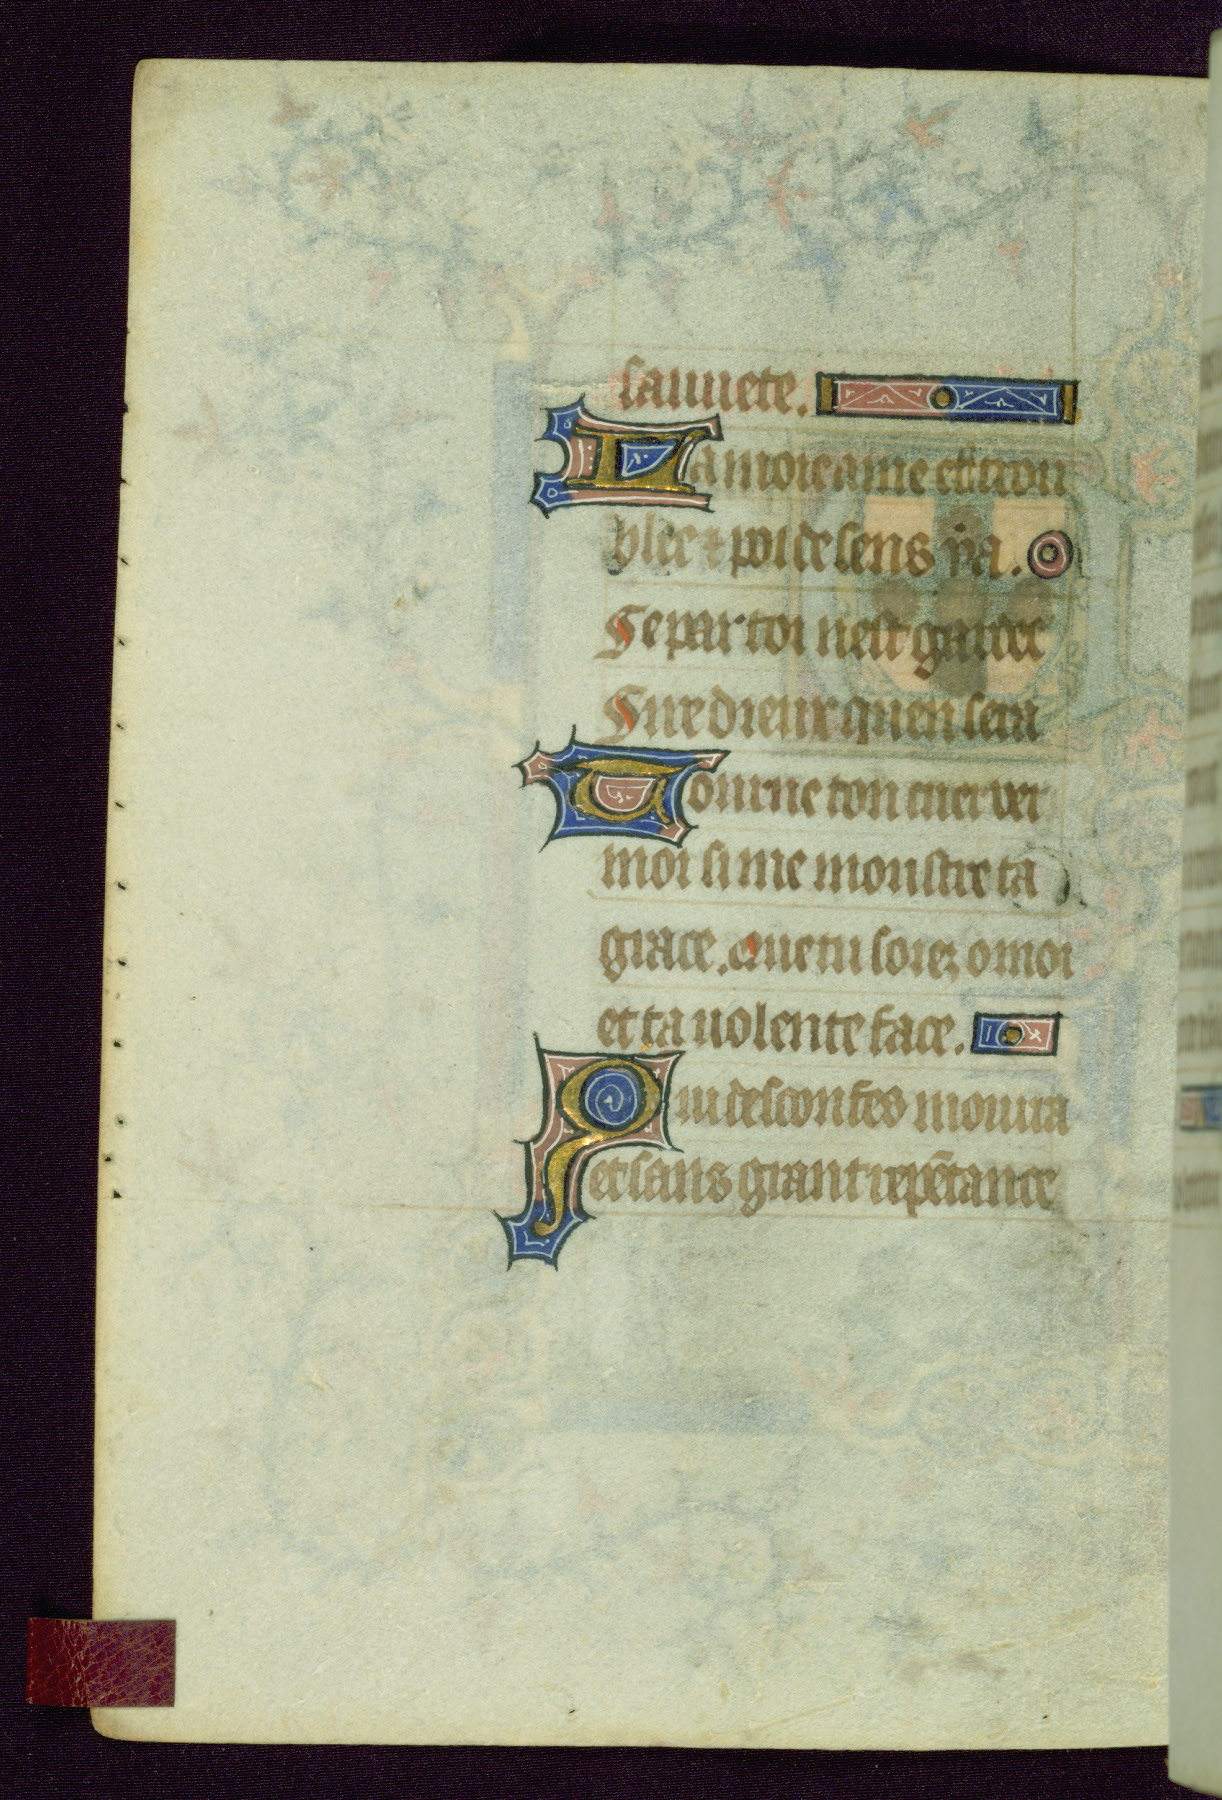 sauuete.
La moie ame est trou
blee ⁊ poi de sens y̾a.
Se par toi nest gardee
Sire dieux quen sera
Tourne ton cuer ver
moi si me monstre ta
grace. Que tu soiez o moi
et ta uolente face.
Qui desconfes mourra
et sans grant repētance